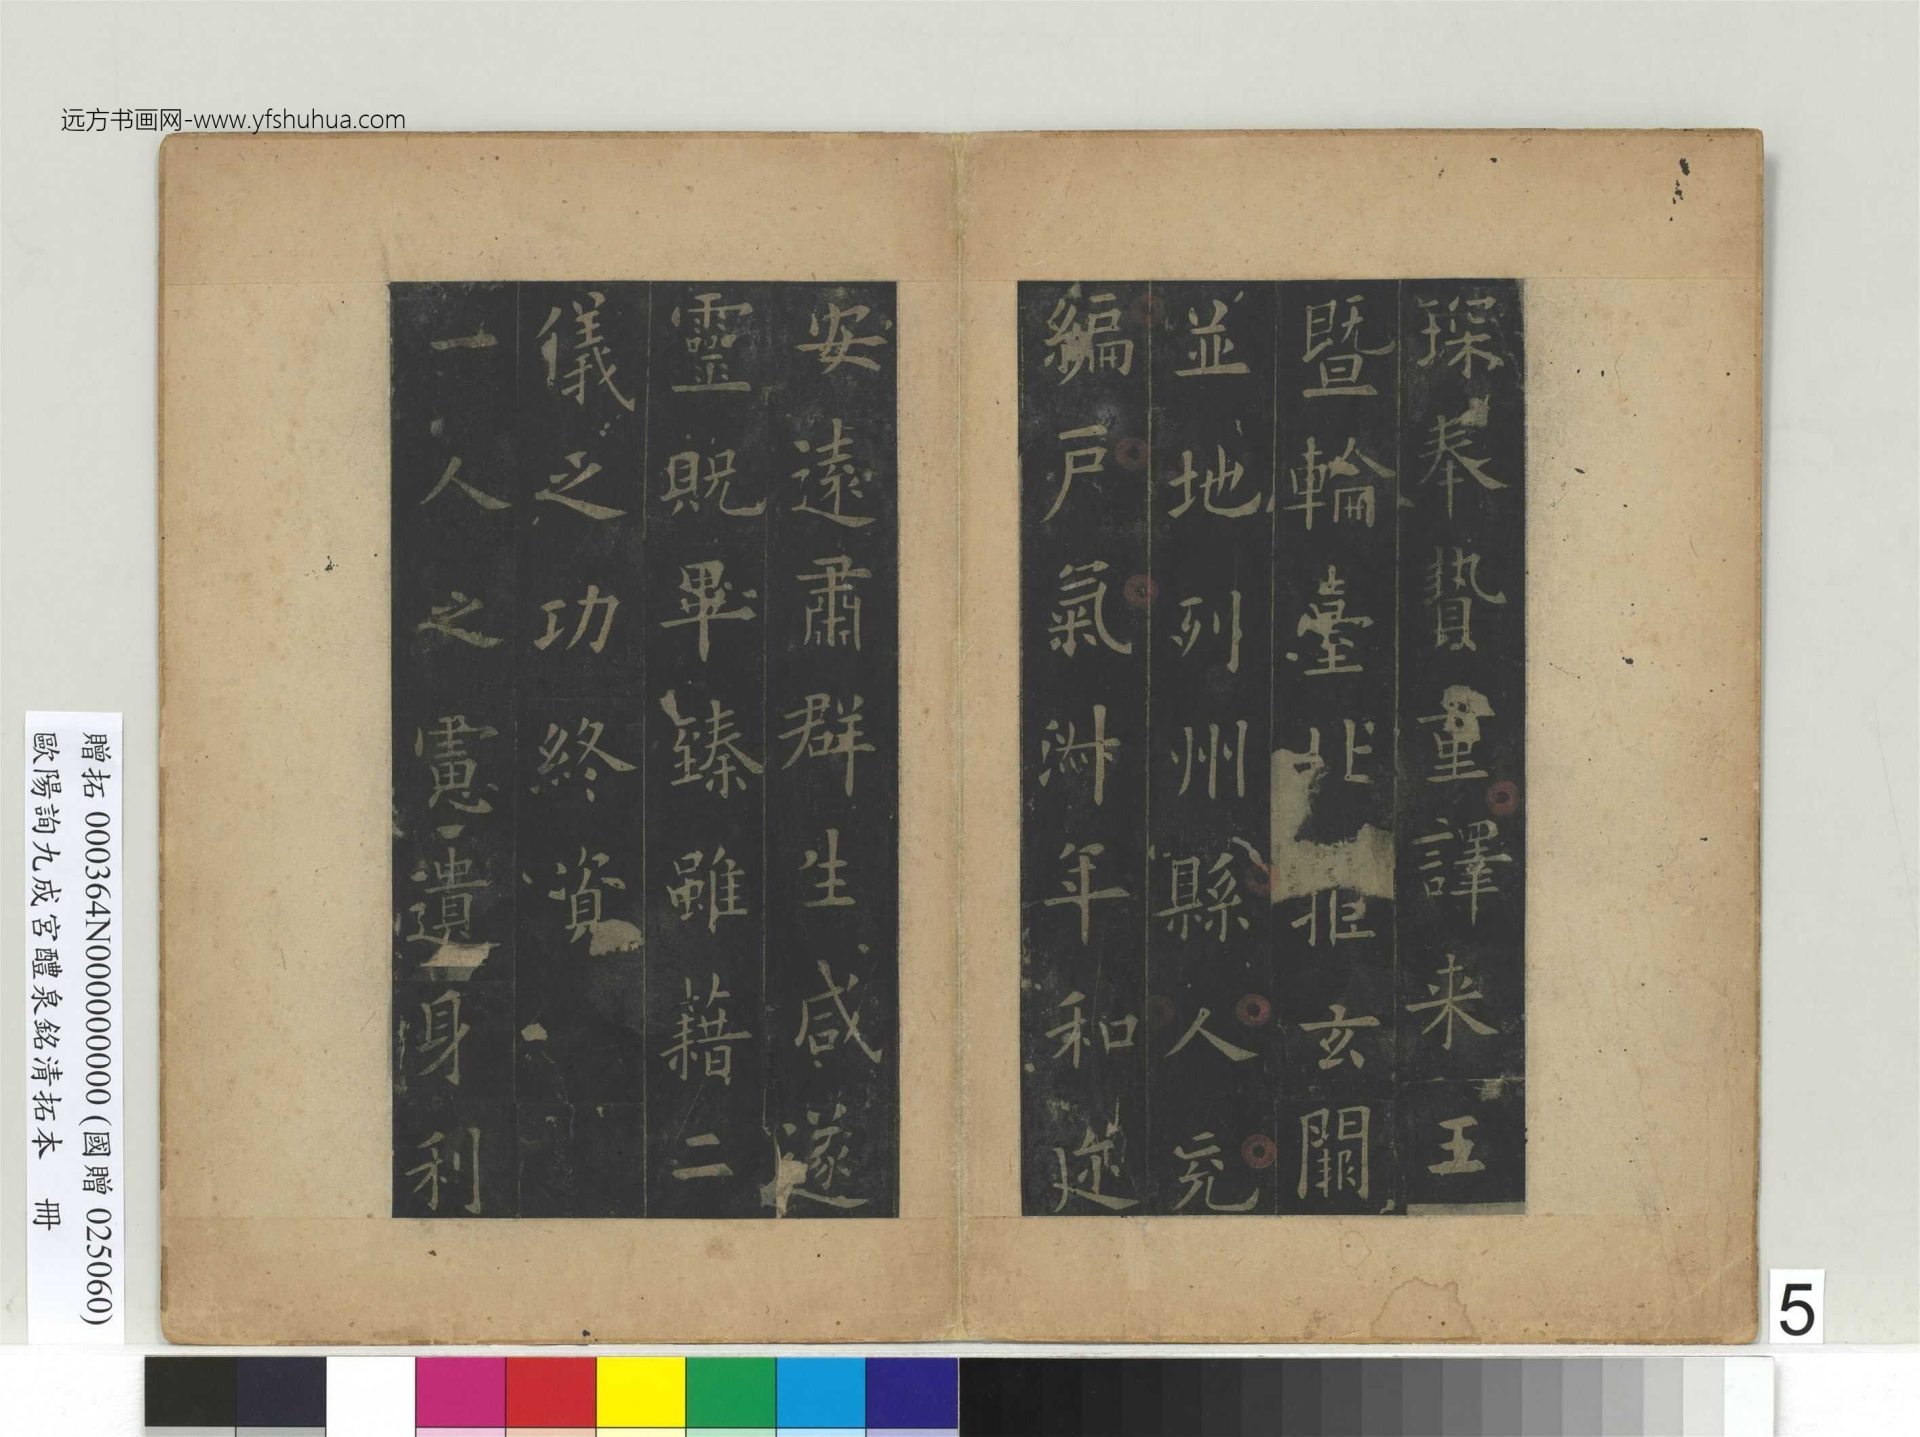 远方书画网-www.yfshuhua.com
琛奉贄重譯来王
暨輪臺北拒玄闕
並地列州縣人充
編戶氣淋年和迩
安遠肅群生咸遂
靈貺畢臻雖藉二
儀之功終資
一人之慮遺身利
贈拓 000364N000000000 (國贈 025060)
歐陽詢九成宮醴泉銘清拓本 冊
5